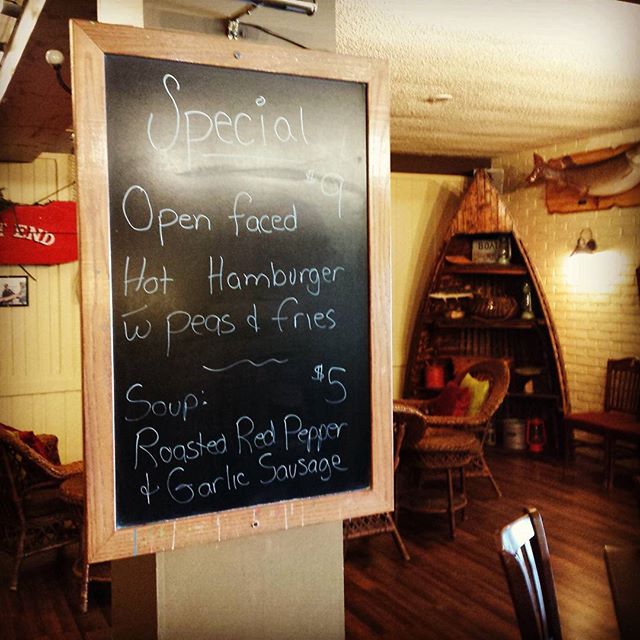 Special
$9
Open faced
Hot Hamburger
w peas & fries
$5
Soup:
Roasted Red Pepper
& Garlic Sausage
T END
BOA